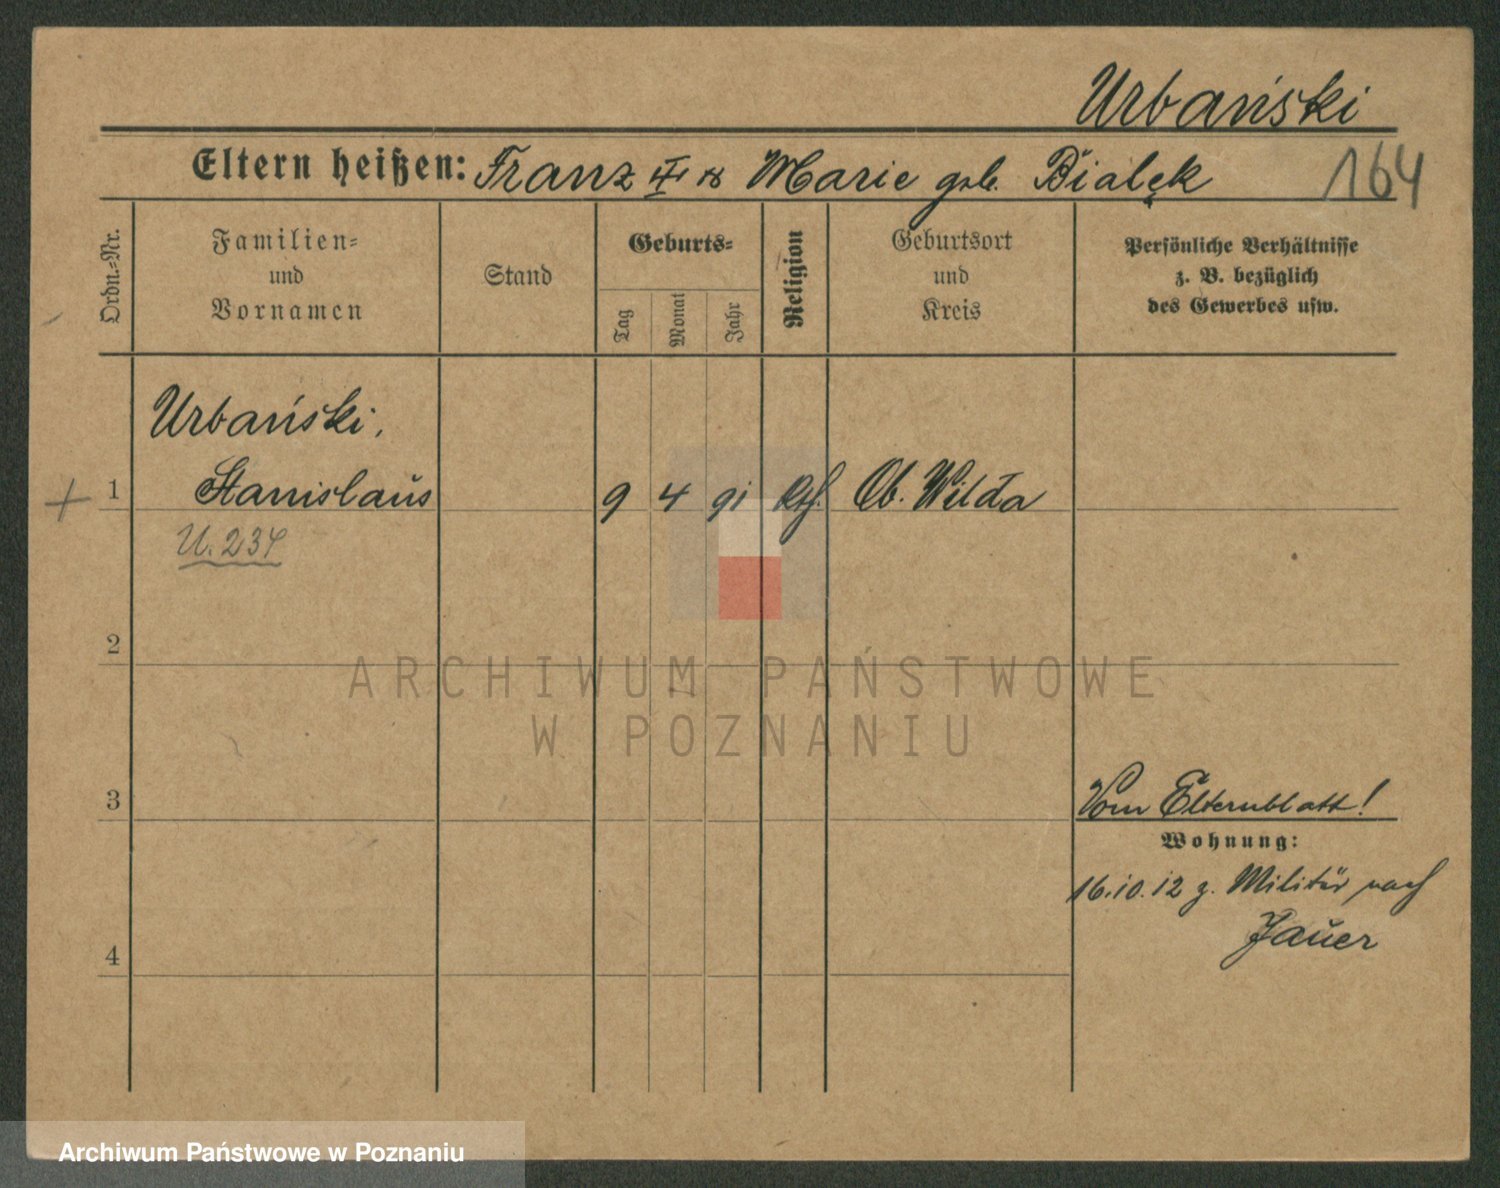 Urbański
Eltern heißen: Franz u. Marie geb. Bialęk 164
Ordn.=Nr.
Familien=
und
Vornamen
Stand
Geburts=
Tag
Monat
Jahr
Religion
Geburtsort
und
Kreis
Persönliche Verhältnisse
z. B. bezüglich
des Gewerbes usw.
Urbański,
1 Stanislaus 9 4 91 Kth. Ob. Wilda
U. 234
2
ARCHIWUM PAŃSTWOWE
W POZNANIU
3 Vom Elternblatt!
Wohnung:
16.10.12 z. Militär nach
Jauer
4
Archiwum Państwowe w Poznaniu